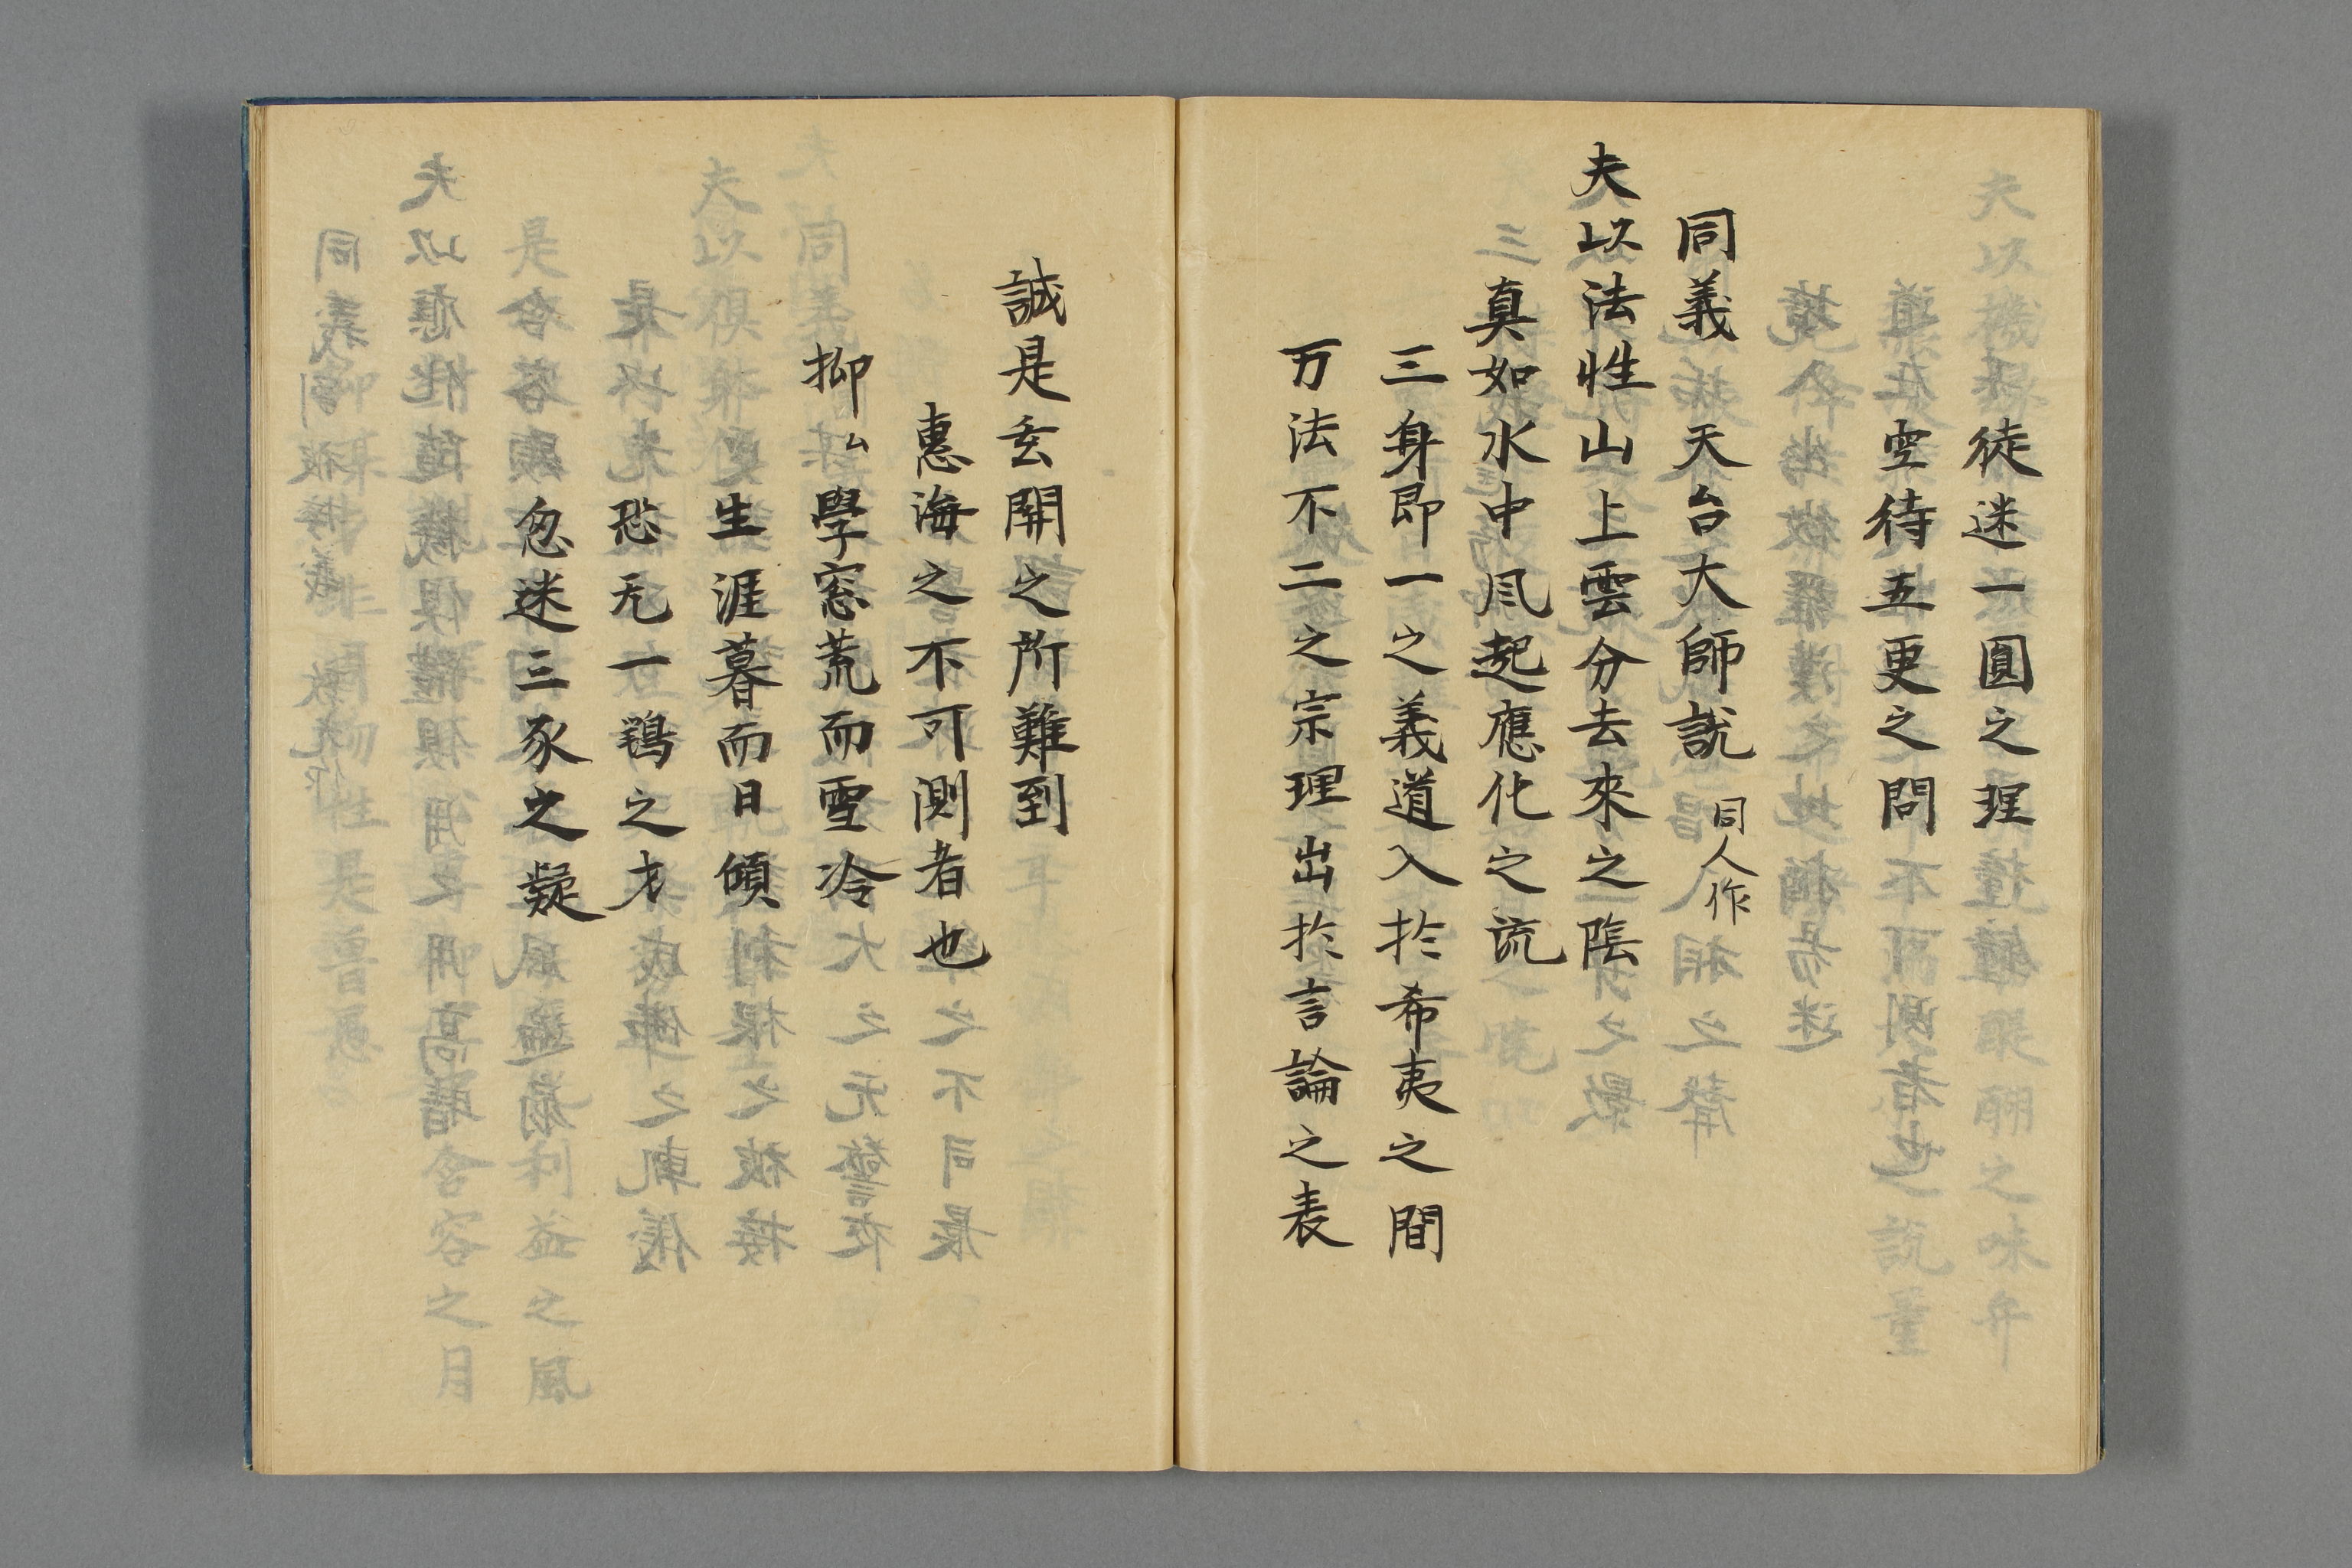 徒迷一圓之理
空待五更之問
同義 天台大師説 同人作
夫以法性山上雲分去來之陰
真如水中風起應化之流
三身即一之義道入於希夷之間
万法不二之宗理出於言論之表
誠是玄開之所難到
惠海之不可測者也
抑ム學窓荒而雪冷
生涯暮而日傾
恐无一鶚之才
忽迷三豕之疑